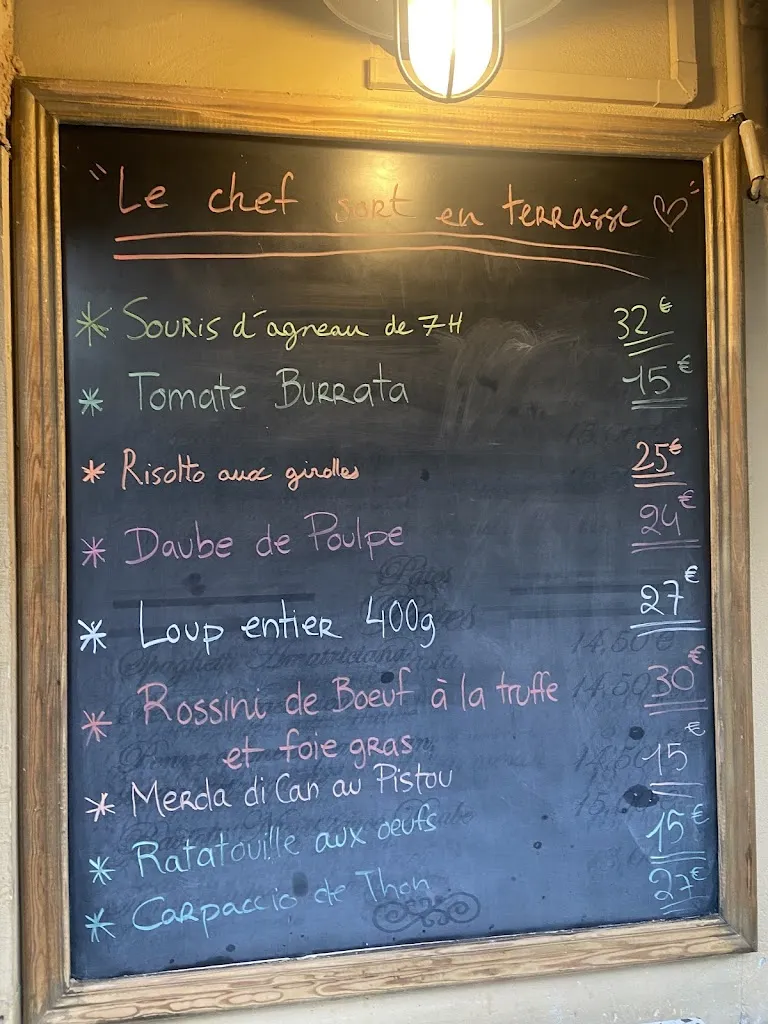 "Le chef sort en terrasse ♡"
* Souris d'agneau de 7H 32€
* Tomate Burrata 15€
* Risotto aux girolles 25€
* Daube de Poulpe 24€
* Loup entier 400g 27€
* Rossini de Boeuf à la truffe 30€
et foie gras
* Merda di Can au Pistou 15€
* Ratatouille aux oeufs 15€
* Carpaccio de Thon 27€
Pâtes
14,50€
14,50